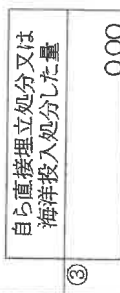 自ら直接埋立処分又は
海洋投入処分した量
③
0.00